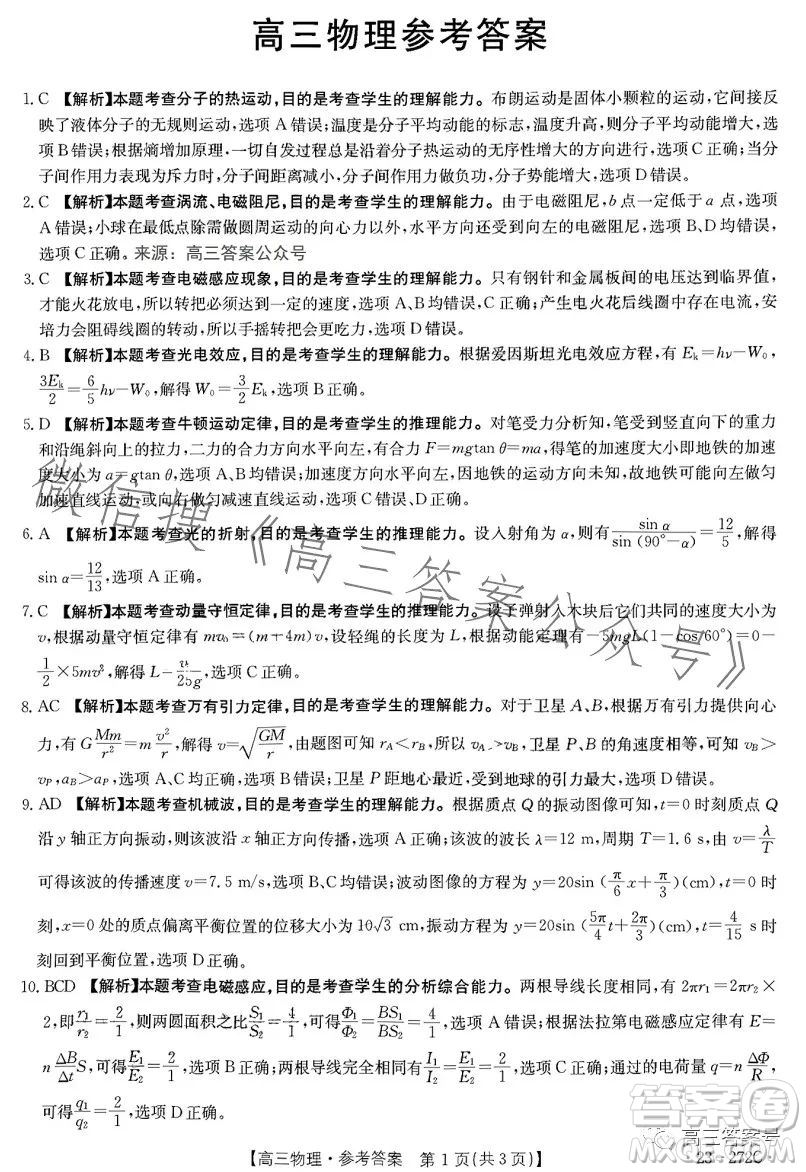 高三物理参考答案
1. C 【解析】本题考查分子的热运动,目的是考查学生的理解能力。布朗运动是固体小颗粒的运动,它间接反
映了液体分子的无规则运动,选项 A 错误;温度是分子平均动能的标志,温度升高,则分子平均动能增大,选
项 B 错误;根据熵增加原理,一切自发过程总是沿着分子热运动的无序性增大的方向进行,C 正确;当分
子间作用力表现为斥力时,分子间距离减小,分子势能增大,选项 D 错误。
2. C 【解析】本题考查涡流、电磁阻尼,目的是考查学生的理解能力。由于电磁阻尼,b 点一定低于 a 点,选项
A 错误;小球在最低点除需做圆周运动的向心力以外,水平方向还受到向左的电磁阻尼,选项 B、D 均错误,
选项 C 正确。 来源:高三答案公众号
3. C 【解析】本题考查电磁感应现象,目的是考查学生的理解能力。只有钢针和金属板间的电压达到临界值,
才能火花放电,所以转把必须达到一定的速度,选项 A、B、D 均错误,C 正确;产生电火花后线圈中存在电流,安
培力会阻碍线圈的转动,所以手摇转把会更吃力,选项 D 错误。
4. B 【解析】本题考查光电效应,目的是考查学生的理解能力。根据爱因斯坦光电效应方程,有 Eₖ=hν−W₀,
3Eₖ/2=6/5hν−W₀,解得 W₀=3/2Eₖ,选项 B 正确。
5. D 【解析】本题考查牛顿运动定律,目的是考查学生的推理能力。对笔受力分析知,笔受到竖直向下的重力
和沿绳斜向上的拉力,二力的合力方向水平向左,有合力 F=mgtan θ=ma,得笔的加速度大小即地铁的加
速度大小为 a=gtan θ,选项 A、B 错误;加速度方向水平向左,因地铁的运动方向未知,故地铁可能向左做匀
加速直线运动,或向右做匀减速直线运动,选项 C 错误、D 正确。
6. A 【解析】本题考查光的折射,目的是考查学生的推理能力。设入射角为 α,则有sin α/sin(90°−α)=12/5,解得
sin α=12/13,选项 A 正确。
7. C 【解析】本题考查动量守恒定律,目的是考查学生的推理能力。设子弹射入木块后它们共同的速度大小为
v,根据动量守恒定律有 mv₀=(m+4m)v,设轻绳的长度为 L,根据动能定理有−5mgL(1−cos 60°)=0−
1/2×5mv²,解得 L=v/25g,选项 C 正确。
8. AC 【解析】本题考查万有引力定律,目的是考查学生的推理能力。对于卫星 A、B,根据万有引力提供向心
力,有 GMm/r²=mv²/r,解得 v=√(GM/r),由题图可知 r_A<r_B,所以 v_A>v_B,卫星 P、B 在同一高度时,可知 v_B>
v_P,a_B>a_P,选项 A、C 均正确、B 错误;卫星 P 距地心最近,受到地球的引力最大,选项 D 错误。
9. AD 【解析】本题考查机械波,目的是考查学生的理解能力。根据质点 Q 的振动图像可知,t=0 时刻质点 Q
沿 y 轴正方向振动,则该波沿 x 轴正方向传播,选项 A 正确;该波的波长 λ=12 m,周期 T=1.6 s,由 v=λ/T
可得该波的传播速度 v=7.5 m/s,选项 B、C 均错误;波动图像的方程为 y=20sin (π/6x+π/3)(cm),t=0 时
刻,x=0 处的质点偏离平衡位置的位移大小为 10√3 cm,振动方程为 y=20sin (5π/4t+2π/3)(cm),t=4/15 s 时
刻回到平衡位置,选项 D 正确。
10. BCD 【解析】本题考查电磁感应,目的是考查学生的分析综合能力。两根导线长度相同,有 2πr₁=2πr₂×
2,即r₁/r₂=2/1,则两圆面积之比S₁/S₂=4/1,可得Φ₁/Φ₂=BS₁/BS₂=4/1,选项 A 错误;根据法拉第电磁感应定律有 E=
nΔB/ΔtS,可得E₁/E₂=2/1,选项 B 正确;两根导线完全相同,有I₁/I₂=E₁/E₂=2/1,选项 C 正确;通过的电荷量 q=nΔΦ/R,
可得q₁/q₂=2/1,选项 D 正确。
微信搜《高三答案公众号》
答案圈
高三答案号
MXQE.COM
【高三物理·参考答案 第 1 页(共 3 页)】
·23-272C·